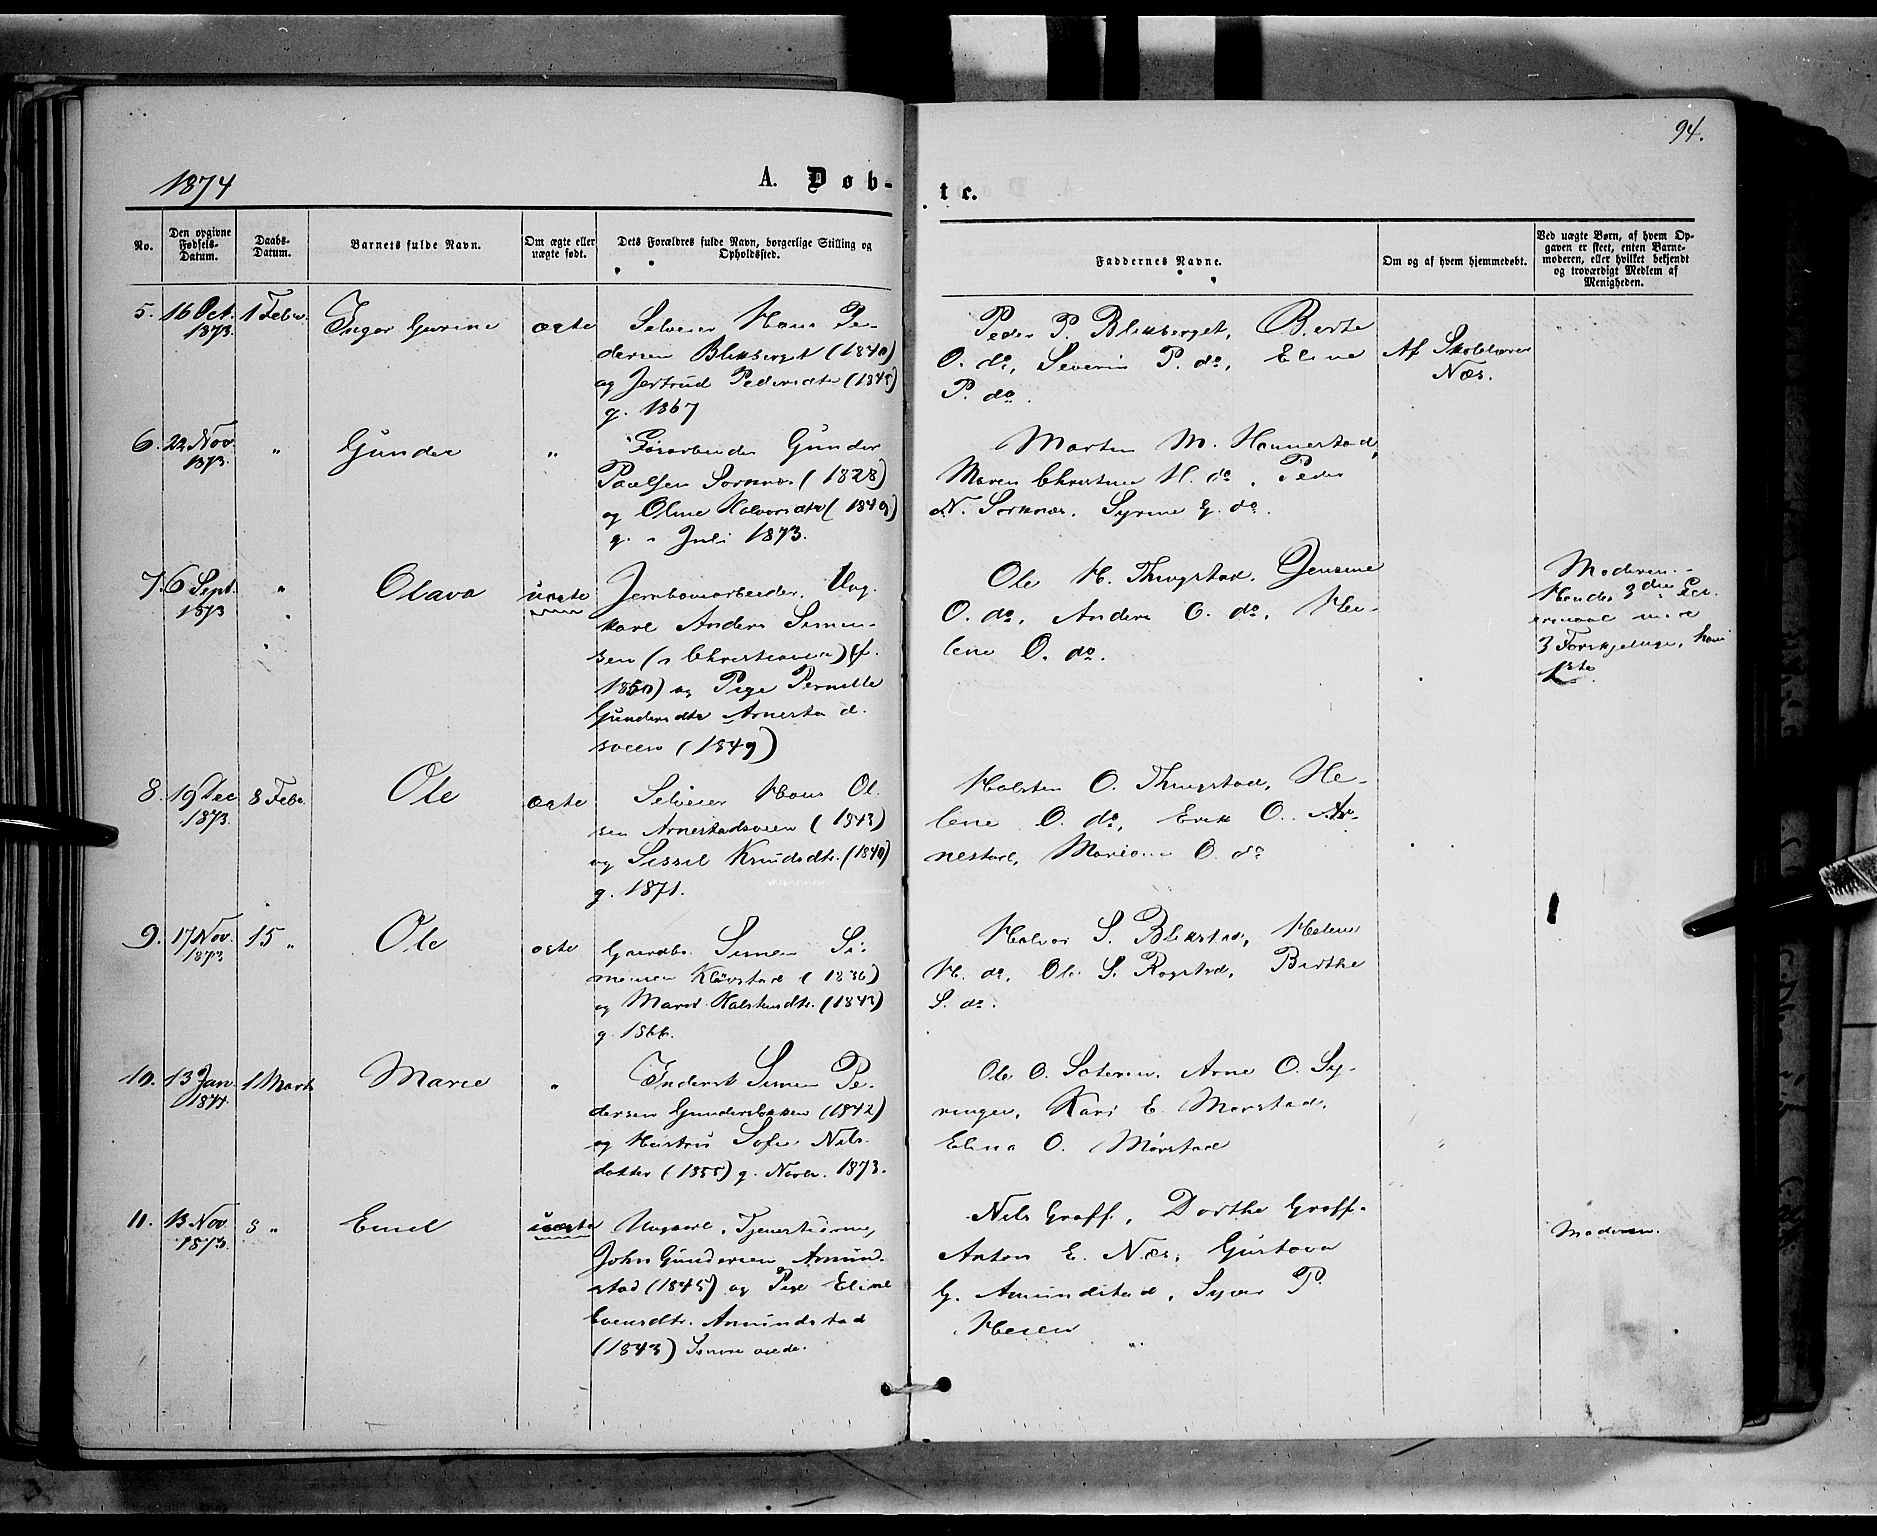 94.
1874 A. Døb-
te.
No. Den opgivne Fødsels-Datum. Daabs-Datum. Barnets fulde Navn. Om ægte eller uægte født. Dets Forældres fulde Navn, borgerlige Stilling og Opholdssted.
Faddernes Navne. Om og af hvem hjemmedøbt. Ved uægte Børn, af hvem Opgaven er skeet, enten Barnemoderen, eller hvilket bekjendt og troværdigt Medlem af Menigheden.
5. 16 Oct. 1873. 1 Febr. Inger Gurine ægte
Selveier Hans Pe-
dersen Blikberget (1840)
og Jertrud Pedersdtr (1845)
g. 1867
Peder P. Blikberget, Berte
O. do, Severin P. do, Eline
P. do.
Af Skolelærer
Næs.
6. 22 Nov. 1873. " Gunder "
Gunder
Paulsen Sorknæs (1828)
og Oline Halvorsdtr (1849)
g. i Juli 1873.
Morten M. Hannestad,
Maren Christine H. do, Peder
N. Sorknæs, Syrine G. do.
7. 6 Sept. 1873 " Olava uægte
Jernbanearbeider, Ung-
karl Anders Simen-
sen (i Christiania) (f.
1850) og Pige Pernille
Gundersdtr Arnestad-
sveen (1849)
Ole H. Thingstad, Jensine
O. do, Anders O. do, He-
lene O. do.
Moderen.
Hendes 3die
med
3 Forskjelige, hans
1ste.
8. 19 Dec 1873. 8 Febr. Ole ægte
Selveier Hans Ol-
sen Arnestadsveen (1843)
og Sissil Knudsdtr. (1840)
g. 1871.
Halsten O. Thingstad, He-
lene O. do, Erik O. Ar-
nestad, Mariane O. do
9. 17 Nov. 1873 15 " Ole ægte
Gaardbr. Simen Si-
mensen Kløvstad (1836)
og Marit Halstensdtr. (1843)
g. 1866.
Halvor S. Blikstad, Helene
H. do, Ole S. Rogstad, Birthe
S. do.
10. 13 Jan. 1874. 1 Marts Marie "
Inderst Simen Pe-
dersen Gundersbakken (1842)
og Hustru Sofie Nils-
datter (1855) g. Novbr. 1873.
Ole O. Sæteren, Arne O. Sy-
ringen, Kari E. Mørstad,
Elina O. Mørstad
11. 13 Nov. 1873. 8 " Emil uægte
Ungkarl, Tjenestedreng
John Gundersen Amund-
stad (1845) og Pige Eline
Evensdtr. Amundstad
(1843)
Nils Graff, Dorthe Graff.
Anton E. Næs, Gustava
G. Amundstad, Syver P.
Heien
Moderen.